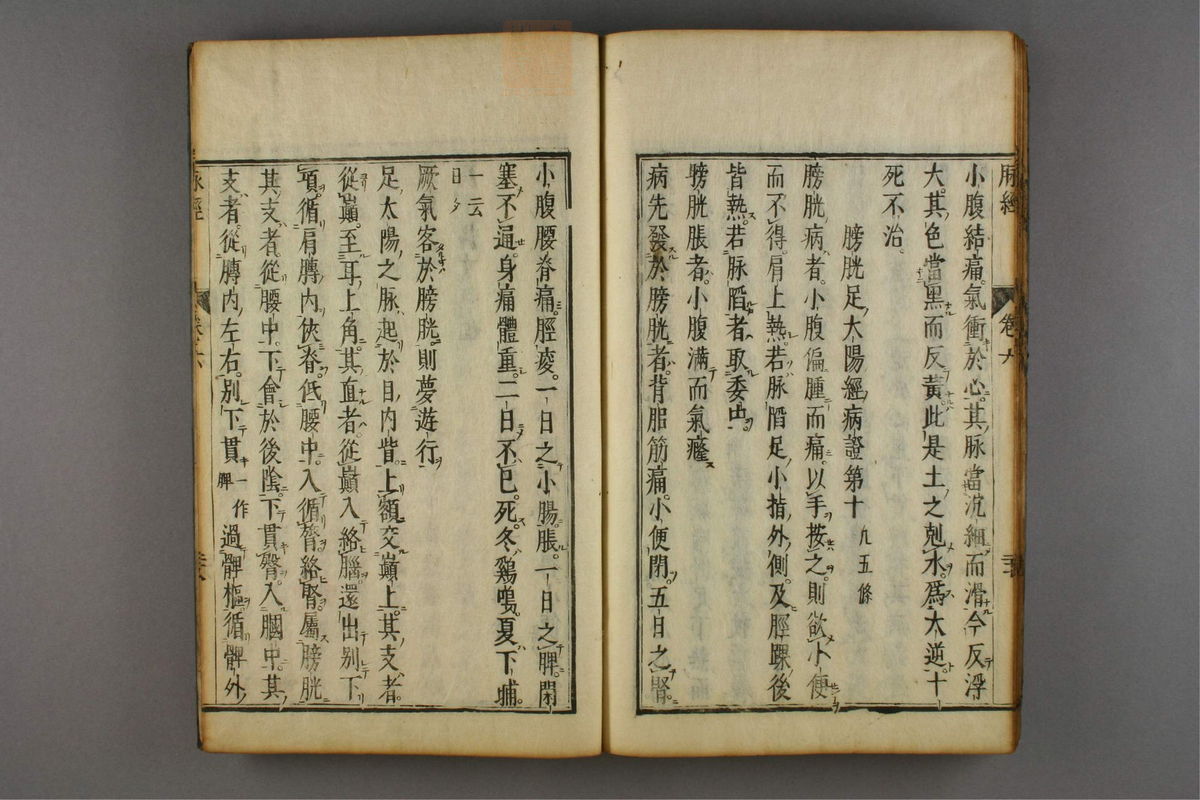 脉經
卷六
小腹結痛。氣衝於心。其脉當沉細而滑。今反浮
大。其色當黑而反黃。此是土之剋水。爲大逆。十
死不治。
膀胱足太陽經病證第十 凡五條
膀胱病者。小腹偏腫而痛。以手按之。則欲小便
而不得。肩上熱。若脉陷足小指外側。及脛踝後
皆熱。若脉陷者。取委中。
膀胱脹者。小腹滿而氣癃
病先發於膀胱者。背膂筋痛。小便閉。五日之腎。
小腹腰脊痛。脛痠。一日之小腸。脹。一日之脾。閉
塞不通。身痛體重。二日不已。死。冬鷄鳴。夏下晡。
一云日夕
厥氣客於膀胱。則夢遊行
足太陽之脉。起於目內眥。上額交巔上。其支者。
從巔。至耳上角。其直者。從巔入絡腦。還出別下
項。循肩膊內。俠脊。低腰中。入循膂。絡腎。屬膀胱
其支者。從腰中。下會於後陰。下貫臀。入膕中。其
支者。從膊內。左右。別下貫 一作髀 過髀樞。循髀外
脉經
卷六